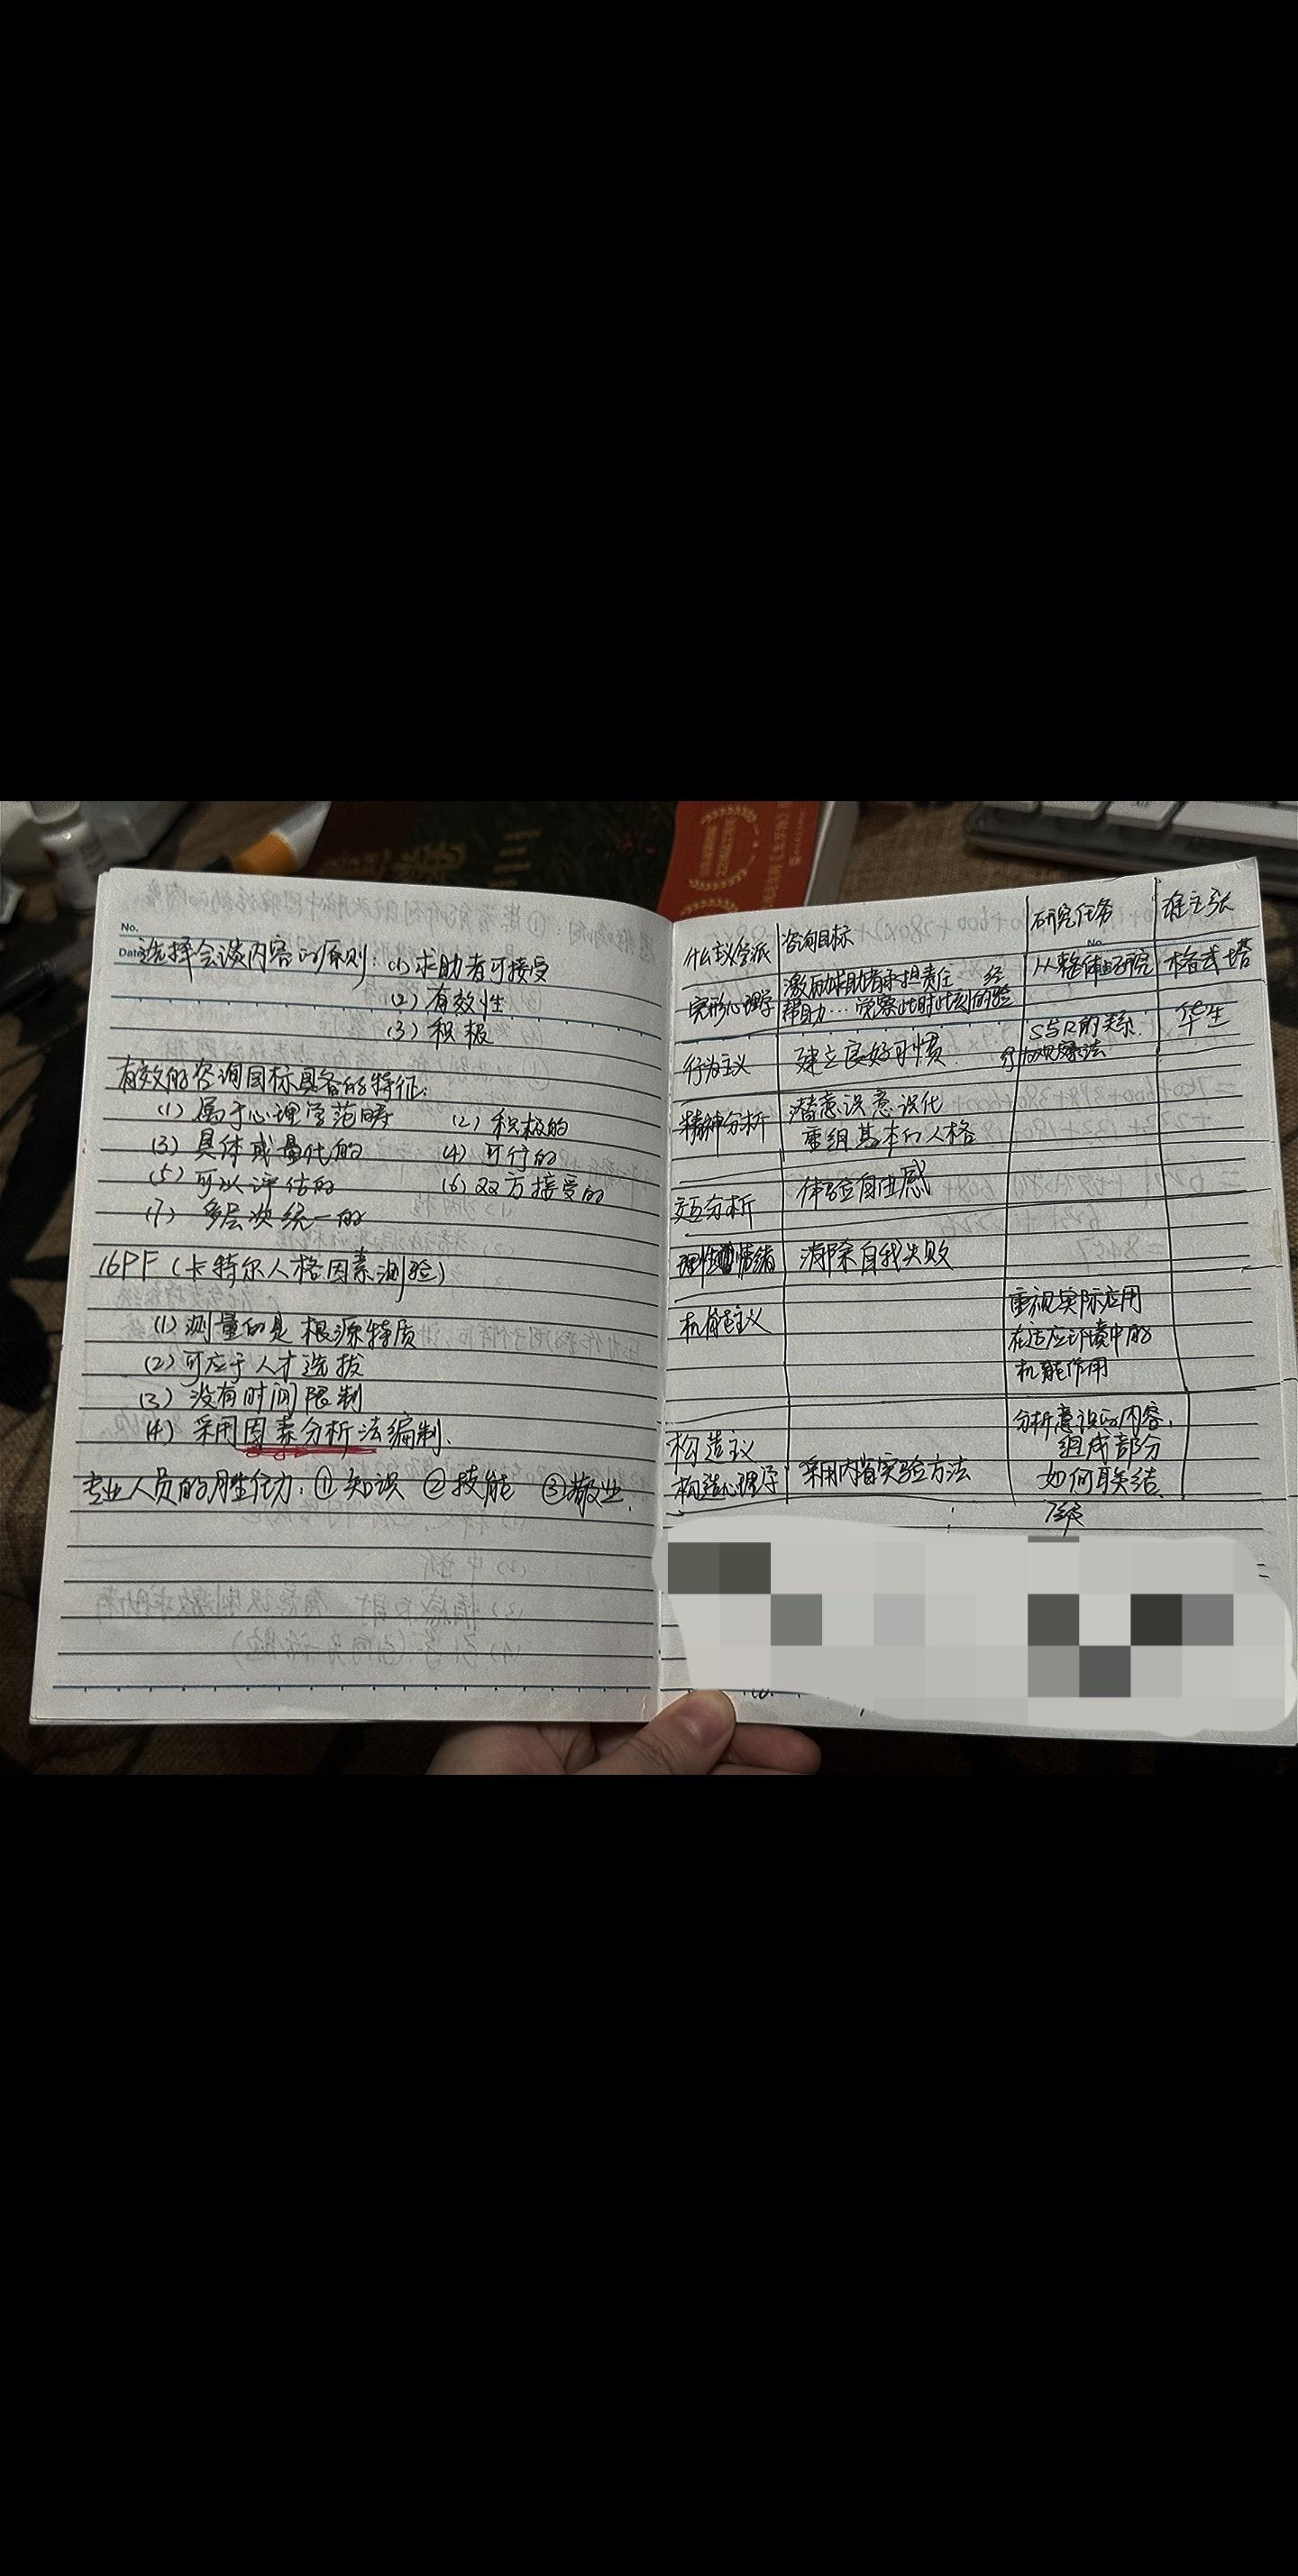 No.
Date
选择会谈内容的原则：(1) 求助者可接受
(2) 有效性
(3) 积极
有效的咨询目标具备的特征：
(1) 属于心理学范畴 (2) 积极的
(3) 具体或量化的 (4) 可行的
(5) 可以评估的 (6) 双方接受的
(7) 多层次统一的
16PF (卡特尔人格因素测验)
(1) 测量的是根源特质
(2) 可应于人才选拔
(3) 没有时间限制
(4) 采用因素分析法编制.
专业人员的胜任力：① 知识 ② 技能 ③ 敬业.
什么主义学派 咨询目标 研究任务 谁主张
No.
完形心理学 激励求助者承担责任 经 从整体的研究 格式塔
帮自力… 觉察此时此刻的验
行为主义 建立良好习惯. S与R的关系. 华生
行为观察法
精神分析 潜意识意识化
重组基本的人格
交互分析 体验自由感
理性情绪 消除自我失败
机能主义 重视实际应用
在适应环境中的
机能作用
构造主义 分析意识的内容,
组成部分
构造心理学 采用内省实验方法 如何联结